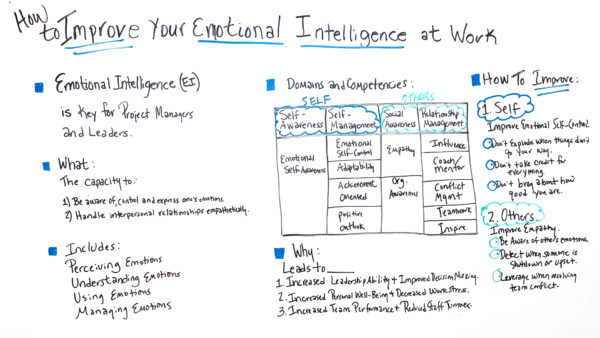 How to Improve Your Emotional Intelligence at Work
Emotional Intelligence (EI)
is Key for Project Managers
and Leaders.
What:
The capacity to:
1) Be aware of, control and express one's emotions.
2) Handle interpersonal relationships empathetically.
Includes:
Perceiving Emotions
Understanding Emotions
Using Emotions
Managing Emotions
Domains and Competencies:
SELF
OTHERS
Self-Awareness
Self-Management
Social Awareness
Relationship Management
Emotional Self-Awareness
Emotional Self-Control
Adaptability
Achievement Oriented
Positive Outlook
Empathy
Org. Awareness
Influence
Coach/mentor
Conflict Mgmt
Teamwork
Inspire
Why:
Leads to
1. Increased Leadership Ability + Improved Decision Making.
2. Increased Personal Well-Being + Decreased Work Stress.
3. Increased Team Performance + Reduced Staff Turnover.
How To Improve:
1. Self
Improve Emotional Self-Control.
Don't Explode when things don't
go your way.
Don't take credit for
everything.
Don't brag about how
good you are.
2. Others
Improve Empathy.
Be Aware of others emotions.
Detect when someone is
shutdown or upset.
Leverage when resolving
team conflict.